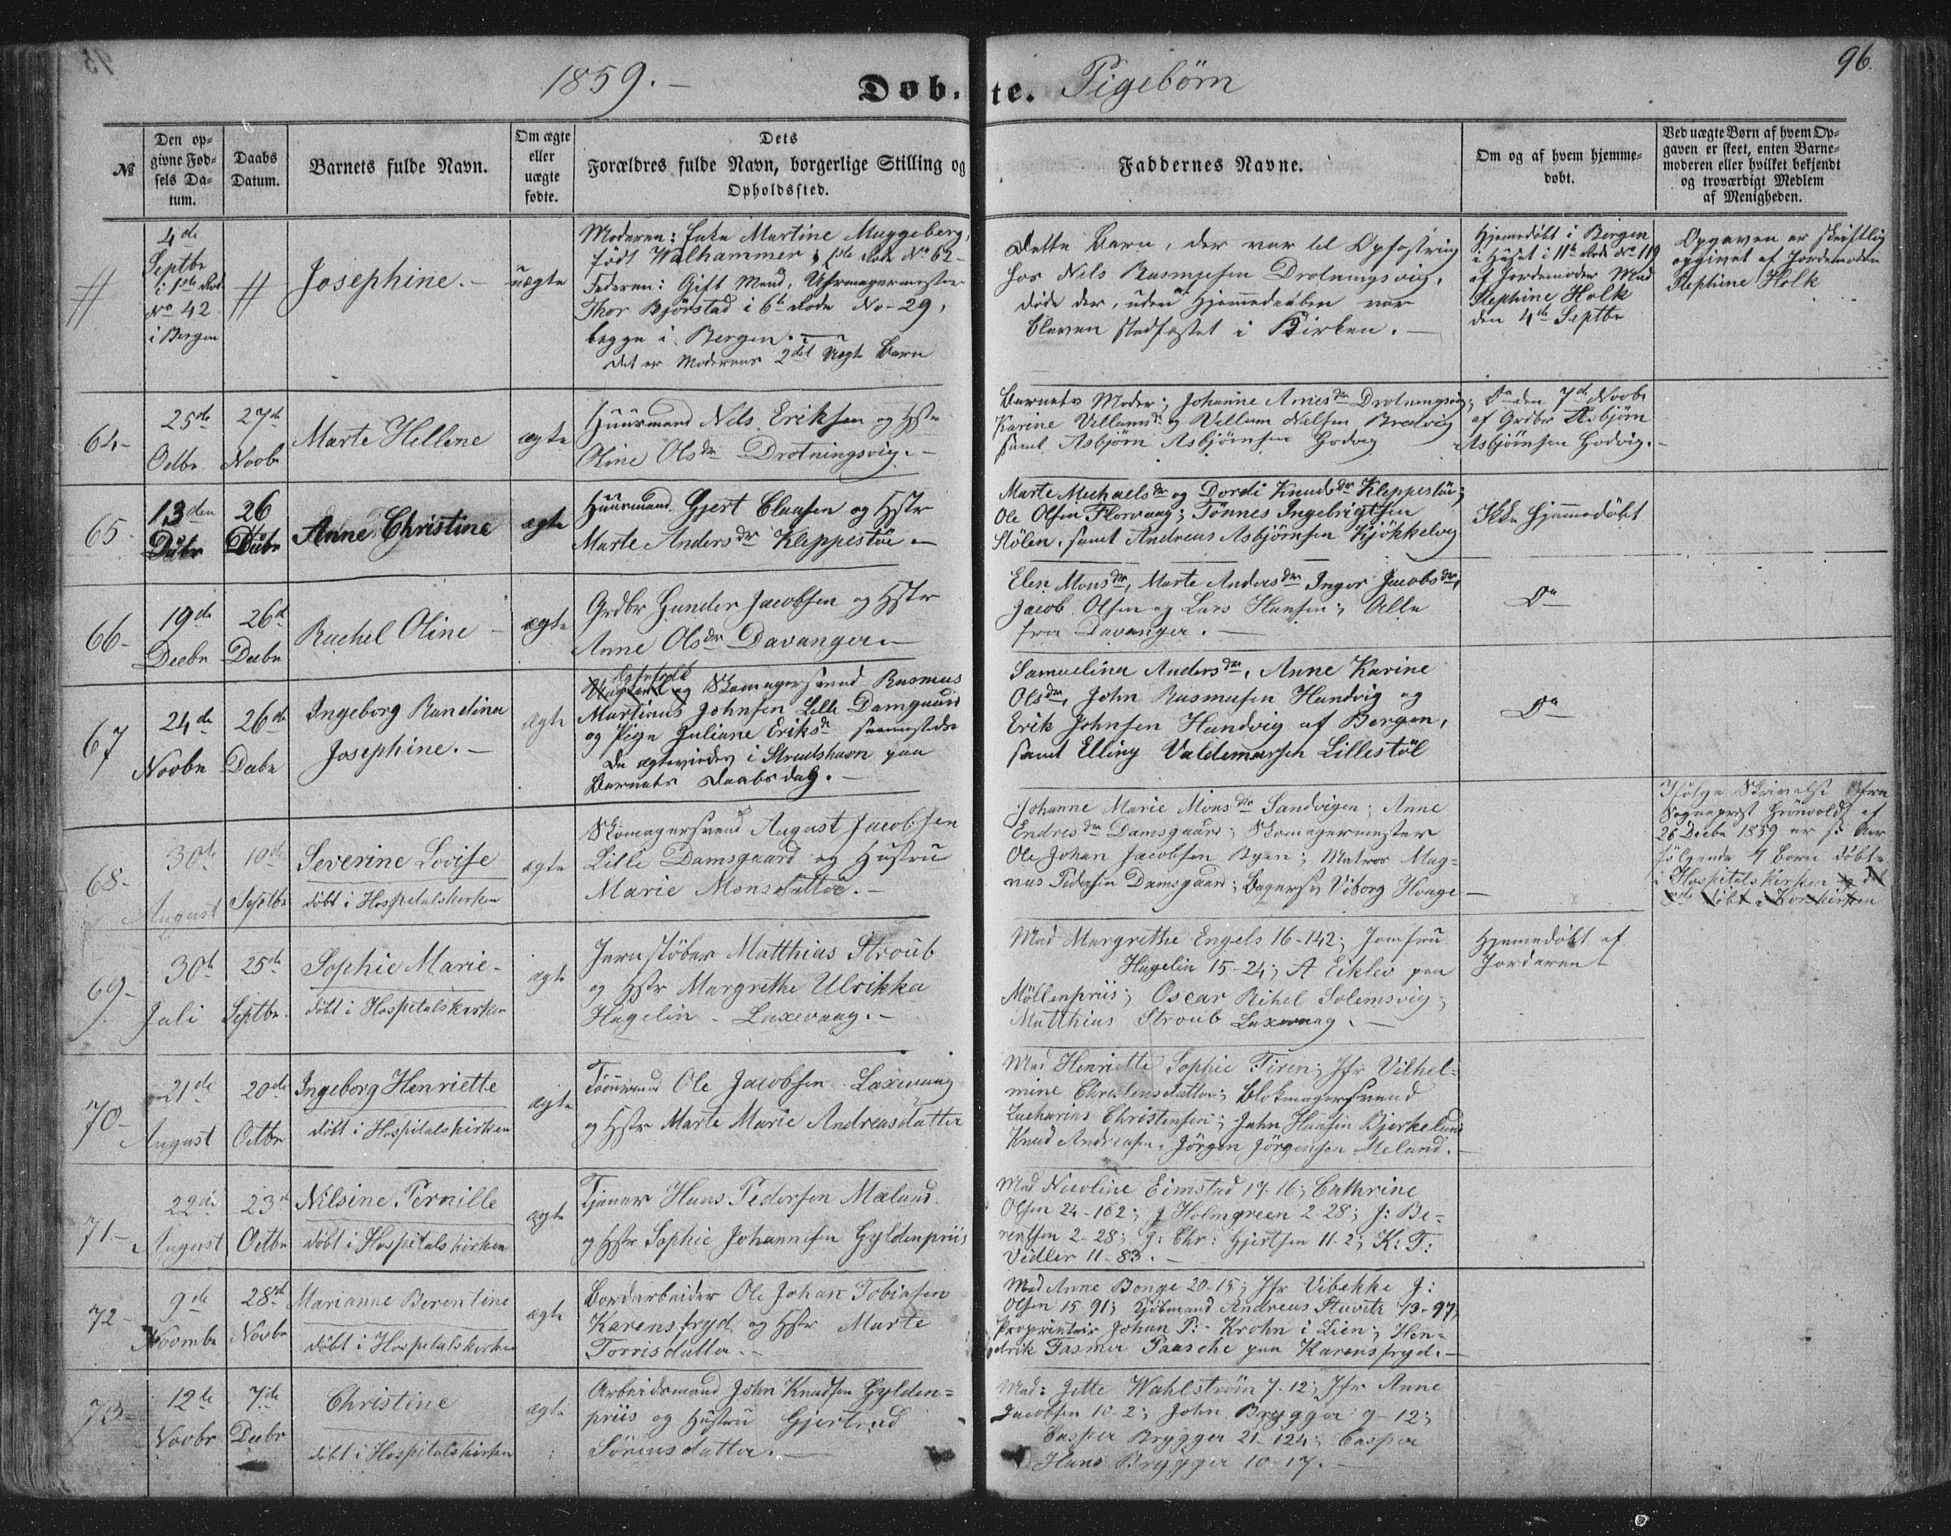 96.
1859. –
Døb-te. Pigebørn
№
Den op-
givne Fød-
sels Da-
tum.
Daabs
Datum.
Barnets fulde Navn.
Om ægte
eller
uægte
fødte.
Dets
Forældres fulde Navn, borgerlige Stilling og
Opholdssted.
Faddernes Navne.
Om og af hvem hjemme-
døbt.
Ved uægte Børn af hvem Op-
gaven er skeet, enten Barne-
moderen eller hvilket bekjendt
og troværdigt Medlem
af Menigheden.
4de
Septbr
i 1ste Rode
No 42
i Bergen
Josephine. –
uægte
Moderen: Enke Martine Muggeberg,
født Walhammer, 1ste Rode No 62 –
Faderen: Gift Mand, Uhrmagermester
Thor Bjørstad i 6te Rode No 29,
begge i Bergen. –
Det er Moderens 2det uægte Barn
Dette Barn, der var til Opfostring
hos Nils Rasmussen Drotningsvig,
døde der, uden at Hjemmedaaben var
bleven stadfæstet i Kirken. –
Hjemmedøbt i Bergen
i Huset i 11te Rode No 119
af Jordemoder Mad
Stephine Holk
den 4de Septbr
Opgaven er skriftlig
opgivet af Jordemoder
Stephine Holk
64 –
25de
Octbr
27de
Novbr
Marte Hellene
ægte
Huusmand Nels Eriksen og Hstr
Oline Olsdr Drotningsvig. –
Barnets Moder; Johanne Arnesdr Drotningsvig;
Karine Villumsdr og Villum Nilsen Bredvig
samt Asbjørn Asbjørnsen Godvig
Ja den 7de Novbr
af Grdbr Asbjørn
Asbjørnsen Godvig. –
65 –
13den
Decbr
26
Decbr
Anne Christine
ægte
Huusmand Gjert Claasen og Hstr
Marte Andersdr Kleppestøe –
Marte Michaelsdr og Dordi Knudsdr Kleppestøe;
Ole Olsen Florvaag; Tønnes Ingebrigtsen
Stølen, samt Andreas Asbjørnsen Kjøkkelvig
Ikke Hjemmedøbt
66 –
19de
Decbr
26de
Decbr
Rachel Oline –
ægte
Grdbr Gunder Jacobsen og Hstr
Anne Olsdr Davanger –
Elen Monsdr, Marte Andersdr, Inger Jacobsdr,
Jacob Olsen og Lars Hansen; Alle
fra Davanger. –
Do
67
24de
Novbr
26de
Decbr
Ingeborg Randina
Josephine. –
ægte
og Skomagersvend Rasmus
Martinus Johnsen Lille Damgaard
og Pige Juliane Eriksdr sammesteds
De ægteviedes i Strudshavn paa
Barnets Daabsdag. –
Samuelina Andersdr, Anne Karine
Olsdr, John Rasmusen Handvig og
Erik Johnsen Handvig af Bergen,
samt Elling Valdemarsen Lillestøl
Do
68 –
30te
August
10de
Septbr
Severine Lovise
døbt i Hospitalskirken
ægte
Skomagersvend August Jacobsen
Lille Damsgaard og Hustru
Marie Monsdatter. –
Johanne Marie Monsdr Sandvigen; Anne
Endresdr Damsgaard; Skomagermester
Ole Johan Jacobsen Byen; Matros Mag-
nus Pedersen Damsgaard; Viborg Hauge –
Ifølge Skrivelse fra
Sogneprest Grønvold af
26 Decbr 1859 er
følgende Børn døbte
i Hospitalskirken
69 –
30te
Juli
25de
Septbr.
Sophie Marie –
døbt i Hospitalskirken
ægte
Jernstøber Matthias Stroub
og Hstr Margrethe Ulrikka
Hagelin – Laxevaag. –
Mad Margrethe Engels 16-142; Jomfru
Hagelin 15-24; A Eiklev paa
Møllenpriis; Oscar Rihel Solemsvig;
Matthias Stroub Laxevaag. –
Hjemmedøbt af
70 –
21de
August
20de
Octbr
Ingeborg Henriette
døbt i Hospitalskirken
ægte
Tømmermand Ole Jacobsen Laxevaag
og Hstr Marte Marie Andreasdatter
Mad Henriette Sophie Firen; Jfr Vilhel-
mine Christensdatter; Blokmagersvend
Zacharias Christensen; John Hansen Bjerkelund
Knud Andersen. Jørgen Jørgensen Meland. –
71 –
22de
August
23de
Octbr
Nilsine Pernille
døbt i Hospitalskirken
ægte
Tjener Hans Pedersen Mæland
og Hstr Sophie Johannesen Gyldenpriis
Mad Nicoline Eimstad 17-16; Cathrine
Olsen 24-162; J Holmgreen 2-28; J: Be-
rentsen 2-28; J: Chr: Gjertsen 11-2; K: F:
Vidler 11-83. –
72 –
9de
Novmbr
28de
Novbr
Marianne Berentine
døbt i Hospitalskirken
ægte
Bordarbeider Ole Johan Tobiasen
Karensfryd og Hstr Marte
Torrisdatter. –
Mad Anne Bonge 20-15; Jfr Vibekke J:
Olsen 15-91; Kjøbmand Andreas Stuvitz 13-97,
Proprietair Johan P: Krohn i Lien; Hen-
drik Fasmer Paasche paa Karensfryd. –
73 –
12te
Novbr
7de
Decbr
Christine
døbt i Hospitalskirken
ægte
Arbeidsmand John Knudsen Gylden-
priis og Hustru Gjertrud
Sørensdatter. –
Mad: Jette Wahlstrøm 7-12; Jfr Anne
Jacobsen 10-2; John Brygger 9-12;
Casper Brygger 21-124; Casper
Hans Brygger 10-17. –